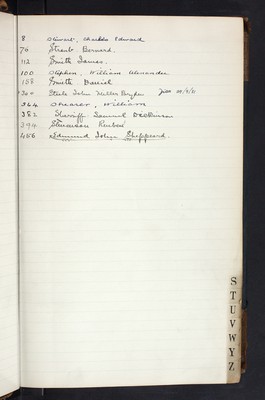 8 Stewart, Charles Edward
76 Straub Bernard.
112 Smith James.
100 Stephen, William Alexander
158 Smith Daniel
Steele John Miller
364 Shearer, William
382 Sherriff Samuel Dickinson
394 Stevenson Reuben
456 Edmund John Sheppeard.
S
T
U
V
W
Y
Z